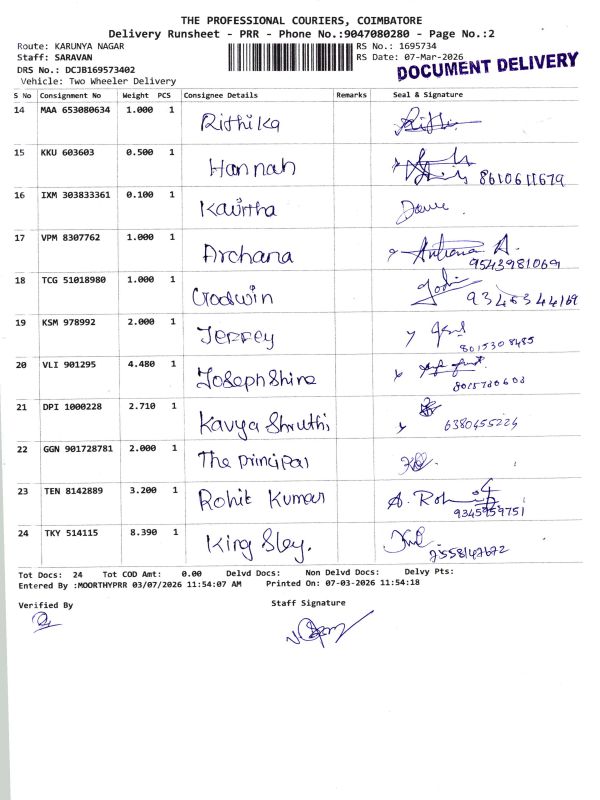 THE PROFESSIONAL COURIERS, COIMBATORE
Delivery Runsheet - PRR - Phone No.:9047080280 - Page No.:2
Route: KARUNYA NAGAR RS No.: 1695734
Staff: SARAVAN RS Date: 07-Mar-2026
DRS No.: DCJB169573402
Vehicle: Two Wheeler Delivery
DOCUMENT DELIVERY
S No Consignment No Weight PCS Consignee Details Remarks Seal & Signature
14 MAA 653080634 1.000 1 Rithika
15 KKU 603603 0.500 1 Hannah 8610611679
16 IXM 303833361 0.100 1 Kavirtha
17 VPM 8307762 1.000 1 Archana 9543981069
18 TCG 51018980 1.000 1 Godwin 9345344169
19 KSM 978992 2.000 1 Jeffrey 8015308485
20 VLI 901295 4.480 1 Joseph Shine
21 DPI 1000228 2.710 1 Kavya Shruthi 6380455224
22 GGN 901728781 2.000 1 The principal
23 TEN 8142889 3.200 1 Rohit Kumar 9345959751
24 TKY 514115 8.390 1 King Sley. 7558147672
Tot Docs: 24 Tot COD Amt: 0.00 Delvd Docs: Non Delvd Docs: Delvy Pts:
Entered By :MOORTHYPRR 03/07/2026 11:54:07 AM Printed On: 07-03-2026 11:54:18
Verified By Staff Signature